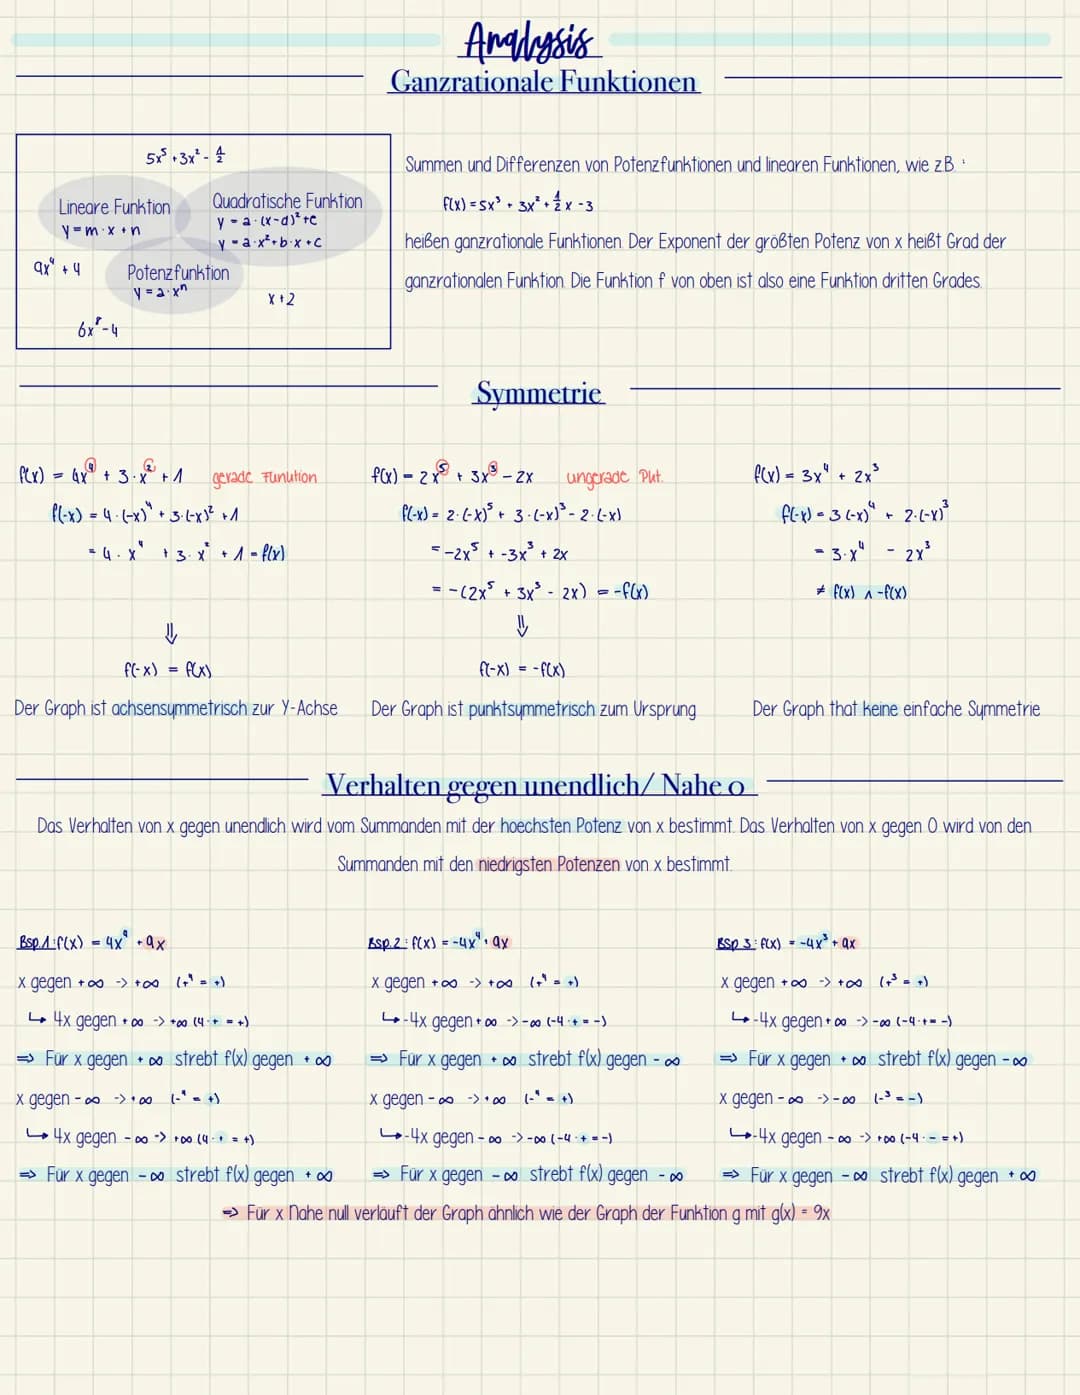 Analysis
Ganzrationale Funktionen
5x⁵ + 3x² - 1/2
Lineare Funktion
y = m · x + n
Quadratische Funktion
y = a · (x-d)² + e
y = a · x² + b · x + c
9x⁴ + 4
Potenzfunktion
y = a · xⁿ
x + 2
6x⁸ - 4
Summen und Differenzen von Potenzfunktionen und linearen Funktionen, wie z.B. :
f(x) = 5x³ + 3x² + 1/2 x - 3
heißen ganzrationale Funktionen. Der Exponent der größten Potenz von x heißt Grad der
ganzrationalen Funktion. Die Funktion f von oben ist also eine Funktion dritten Grades.
Symmetrie
f(x) = 4x⁴ + 3·x² + 1 gerade Funktion
f(-x) = 4·(-x)⁴ + 3·(-x)² + 1
= 4·x⁴ + 3·x² + 1 = f(x)
⇓
f(-x) = f(x)
Der Graph ist achsensymmetrisch zur Y-Achse
f(x) = 2x⁵ + 3x³ - 2x ungerade
f(-x) = 2·(-x)⁵ + 3·(-x)³ - 2·(-x)
= -2x⁵ + -3x³ + 2x
= -(2x⁵ + 3x³ - 2x) = -f(x)
⇓
f(-x) = -f(x)
Der Graph ist punktsymmetrisch zum Ursprung
f(x) = 3x⁴ + 2x³
f(-x) = 3(-x)⁴ + 2·(-x)³
= 3·x⁴ - 2x³
≠ f(x) ∧ -f(x)
Der Graph that keine einfache Symmetrie
Verhalten gegen unendlich/ Nahe 0
Das Verhalten von x gegen unendlich wird vom Summanden mit der hoechsten Potenz von x bestimmt. Das Verhalten von x gegen 0 wird von den
Summanden mit den niedrigsten Potenzen von x bestimmt.
Bsp.1: f(x) = 4x⁴ + 9x
x gegen +∞ -> +∞ (+⁴ = +)
↳ 4x gegen +∞ -> +∞ (4·+ = +)
⇒ Für x gegen +∞ strebt f(x) gegen +∞
x gegen -∞ -> +∞ (-⁴ = +)
↳ 4x gegen -∞ -> +∞ (4·+ = +)
⇒ Für x gegen -∞ strebt f(x) gegen +∞
Bsp.2: f(x) = -4x⁴ + 9x
x gegen +∞ -> +∞ (+⁴ = +)
↳ -4x gegen +∞ -> -∞ (-4·+ = -)
⇒ Für x gegen +∞ strebt f(x) gegen -∞
x gegen -∞ -> +∞ (-⁴ = +)
↳ -4x gegen -∞ -> -∞ (-4·+ = -)
⇒ Für x gegen -∞ strebt f(x) gegen -∞
Bsp 3: f(x) = -4x³ + 9x
x gegen +∞ -> +∞ (+³ = +)
↳ -4x gegen +∞ -> -∞ (-4·+ = -)
⇒ Für x gegen +∞ strebt f(x) gegen -∞
x gegen -∞ -> -∞ (-³ = -)
↳ -4x gegen -∞ -> +∞ (-4·- = +)
⇒ Für x gegen -∞ strebt f(x) gegen +∞
⇒ Für x Nahe null verläuft der Graph ähnlich wie der Graph der Funktion g mit g(x) = 9x